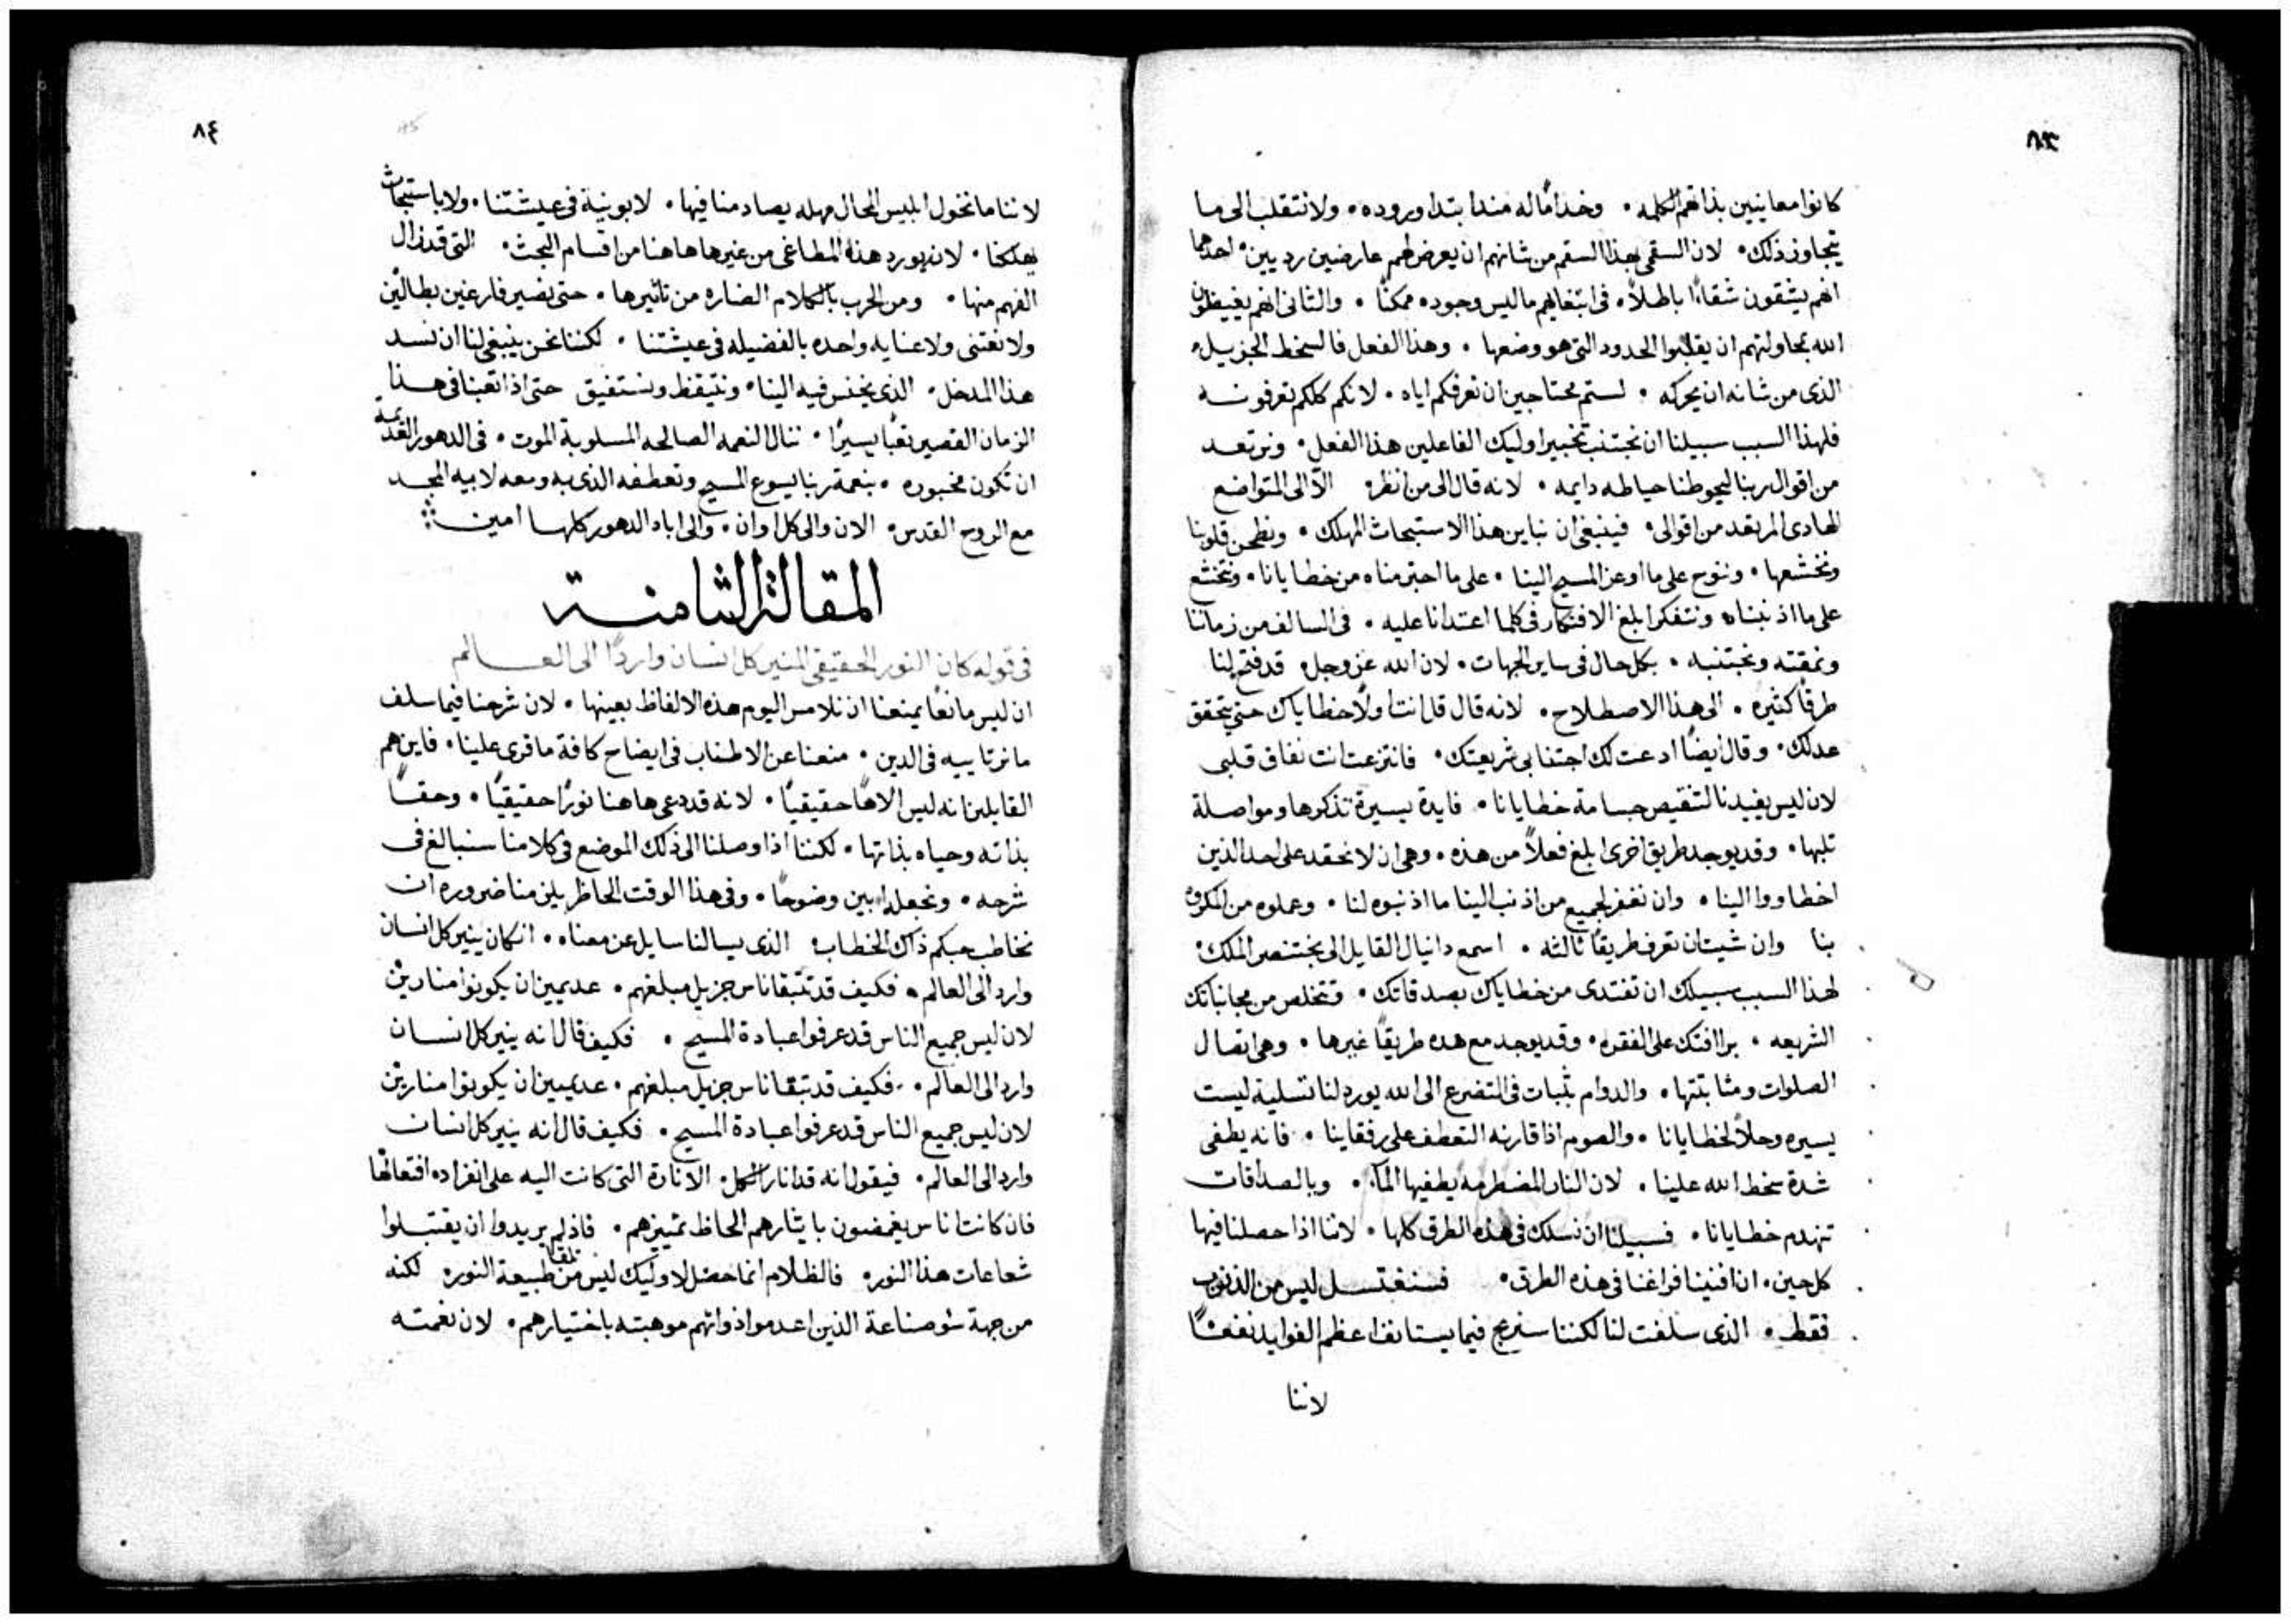 ٨٣
كانوا معاينين بذاتهم الكلمه ٠ وخدامًا له منذ ابتدا وروده ٠ ولا نتقلب الى ما
يتجاوز ذلك ٠ لان السقمى بهذا السقم من شانهم ان يعرض لهم عارضين رديين ٠ احدهما
انهم يشقون شقاءً باطلاً ٠ فى ابتغايهم ما ليس وجوده ممكنًا ٠ والثانى انهم يغيظون
الله بمحاولتهم ان يقلبوا الحدود التى هو وضعها ٠ وهذا الفعل فالسخط الجزيل
الذى من شانه ان يحركه ٠ لستم محتاجين ان نعرفكم اياه ٠ لانكم كلكم تعرفونه
فلهذا السبب سبيلنا ان نجتنب تخيير اوليك الفاعلين هذا الفعل ٠ ونرتعد
من اقوال ربنا ليحوطنا حياطه دايمه ٠ لانه قال الى من انظر ٠ الا الى المتواضع
الهادى المرتعد من اقوالى ٠ فينبغى ان نباين هذا الاستبحاث المهلك ٠ ونطحن قلوبنا
ونخشعها ٠ وننوح على ما اوعز المسيح الينا ٠ على ما اجترمناه من خطايانا ٠ ونتخشع
على ما اذنبناه ونتفكر ابلغ الافتكار فى كلما اعتدانا عليه ٠ فى السالف من زماننا
ونمقته ونجتنبه ٠ بكل حال فى ساير الجهات ٠ لان الله عز وجل قد فتح لنا
طرقًا كثيره ٠ الى هذا الاصطلاح ٠ لانه قال قل انت اولاً خطاياك حتى تتحقق
عدلك ٠ وقال ايضًا ادعت لك اجتفابى شريعتك ٠ فانتزعت انت نفاق قلبى
لان ليس يفيدنا لتنقيص جسامة خطايانا ٠ فايدة يسيرة تذكرها ومواصلة
ثلبها ٠ وقد يوجد طريق اخرى ابلغ فعلاً من هذه ٠ وهى ان لا نحقد على احد الذين
اخطاووا الينا ٠ وان نغفر لجميع من اذنب الينا ما اذنبوه لنا ٠ وعملوه من المكروه
بنا وان شيت ان تعرف طريقًا ثالثه ٠ اسمع دانيال القايل الى بختنصر الملك ٠
لهذا السبب سبيلك ان تفتدى من خطاياك بصدقاتك ٠ وتتخلص من مجانباتك
الشريعه ٠ برافتك على الفقراء ٠ وقد يوجد مع هذه طريقًا غيرها ٠ وهى اتصال
الصلوات ومثابتتها ٠ والدوام بثبات فى التضرع الى الله يورد لنا تسلية ليست
يسيره وحلاً لخطايانا ٠ والصوم اذا قارنه التعطف على رفقاينا ٠ فانه يطفى
شدة سخط الله علينا ٠ لان النار المضطرمه يطفيها الماء ٠ وبالصداقات
تنهدم خطايانا ٠ فسبيلنا ان نسلك فى هذه الطرق كلها ٠ لاننا اذا حصلنا فيها
كل حين ٠ ان افنينا فراغنا فى هذه الطرق ٠ فسنغتسل ليس من الذنوب
فقط ٠ الذى سلفت لنا لكننا سنربح فيما يستانف اعظم الفوايد نفعًا
لاننا
٨٤
لاننا ما نخول ابليس المحال مهله يصادمنا فيها ٠ لا بونية فى عيشتنا ٠ ولا باستبحاث
يهلكنا ٠ لانه يورد هذه المطاغى من غيرها هاهنا من اقسام البحث ٠ التى قد زال
الفهم منها ٠ ومن الحرب بالكلام الضاره من تاثيرها ٠ حتى نصير فارغين بطالين
ولا نعتنى ولا عنايه واحده بالفضيله فى عيشتنا ٠ لكننا نحن ينبغى لنا ان نسد
هذا المدخل ٠ الذى يخنس فيه الينا ٠ ونتيقظ ونستفيق حتى اذا تعبنا فى هذا
الزمان القصير تعبًا يسيرًا ٠ ننال النعمه الصالحه المسلوبة الموت ٠ فى الدهور القديمة
ان تكون مخبوره ٠ بنعمة ربنا يسوع المسيح وتعطفه الذى به ومعه لابيه المجد
مع الروح القدس ٠ الان والى كل اوان ٠ والى اباد الدهور كلها امين
المقالة الثامنة
فى قوله كان النور الحقيقى المنير كل انسان واردًا الى العالم
ان ليس مانعًا يمنعنا ان نلامس اليوم هذه الالفاظ بعينها ٠ لان شرحنا فيما سلف
ما نرتاييه فى الدين ٠ منعنا عن الاطناب فى ايضاح كافة ما قرى علينا ٠ فاين هم
القايلين انه ليس الاهًا حقيقيًا ٠ لانه قد دعى هاهنا نورًا حقيقيًا ٠ وحقًا
بذاته وحياه بذاتها ٠ لكننا اذا وصلنا الى ذلك الموضع فى كلامنا سنبالغ فى
شرحه ٠ ونجعله ابين وضوحًا ٠ وفى هذا الوقت الحاظر يلزمنا ضروره ان
نخاطب حبكم ذاك الخطاب الذى يسالنا سايل عن معناه ٠ ان كان ينير كل انسان
وارد الى العالم ٠ فكيف قد تتبقا ناس جزيل مبلغهم ٠ عديمين ان يكونوا منارين
لان ليس جميع الناس قد عرفوا عبادة المسيح ٠ فكيف قال انه ينير كل انسان
وارد الى العالم ٠ فكيف قد تبقا ناس جزيل مبلغهم ٠ عديمين ان يكونوا منارين
لان ليس جميع الناس قد عرفوا عبادة المسيح ٠ فكيف قال انه ينير كل انسان
وارد الى العالم ٠ فيقول انه قد انار الكل ٠ الانارة التى كانت اليه على انفراده افتعالها
فان كانت ناس يغمضون بايثارهم الحاظ تمييزهم ٠ فاذ لم يريدوا ان يقتبلوا
شعاعات هذا النور ٠ فالظلام انما حصل لاوليك ليس من تلقا طبيعة النور ٠ لكنه
من جهة سو صناعة الذين اعدموا ذواتهم موهبته باختيارهم ٠ لان نعمته